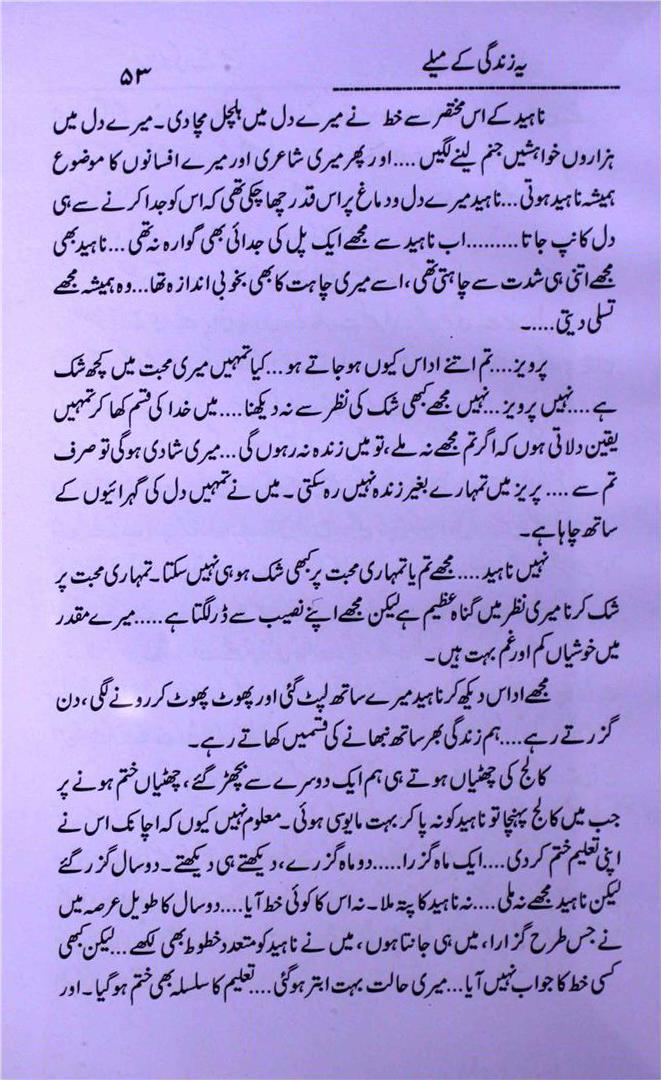 یہ زندگی کے میلے ۵۳
ناہید کے اس مختصر سے خط نے میرے دل میں ہلچل مچا دی۔ میرے دل میں
ہزاروں خواہشیں جنم لینے لگیں .... اور پھر میری شاعری اور میرے افسانوں کا موضوع
ہمیشہ ناہید ہوتی ... ناہید میرے دل و دماغ پر اس قدر چھا چکی تھی کہ اس کو جدا کرنے سے ہی
دل کانپ جاتا ......... اب ناہید سے مجھے ایک پل کی جدائی بھی گوارہ نہ تھی ... ناہید بھی
مجھے اتنی ہی شدت سے چاہتی تھی، اسے میری چاہت کا بھی بخوبی اندازہ تھا ... وہ ہمیشہ مجھے
تسلی دیتی ....۔
پرویز .... تم اتنے اداس کیوں ہو جاتے ہو ... کیا تمہیں میری محبت میں کچھ شک
ہے .... نہیں پرویز ... نہیں مجھے کبھی شک کی نظر سے نہ دیکھنا .... میں خدا کی قسم کھا کر تمہیں
یقین دلاتی ہوں کہ اگر تم مجھے نہ ملے، تو میں زندہ نہ رہوں گی ... میری شادی ہو گی تو صرف
تم سے .... پریز میں تمہارے بغیر زندہ نہیں رہ سکتی۔ میں نے تمہیں دل کی گہرائیوں کے
ساتھ چاہا ہے۔
نہیں ناہید .... مجھے تم یا تمہاری محبت پر کبھی شک ہو ہی نہیں سکتا۔ تمہاری محبت پر
شک کرنا میری نظر میں گناہ عظیم ہے لیکن مجھے اپنے نصیب سے ڈر لگتا ہے ..... میرے مقدر
میں خوشیاں کم اور غم بہت ہیں۔
مجھے اداس دیکھ کر ناہید میرے ساتھ لپٹ گئی اور پھوٹ پھوٹ کر رونے لگی، دن
گزرتے رہے .... ہم زندگی بھر ساتھ نبھانے کی قسمیں کھاتے رہے۔
کالج کی چھٹیاں ہوتے ہی ہم ایک دوسرے سے بچھڑ گئے، چھٹیاں ختم ہونے پر
جب میں کالج پہنچا تو ناہید کو نہ پا کر بہت مایوسی ہوئی۔ معلوم نہیں کیوں کہ اچانک اس نے
اپنی تعلیم ختم کر دی .... ایک ماہ گزرا ..... دو ماہ گزرے، دیکھتے ہی دیکھتے۔ دو سال گزر گئے
لیکن ناہید مجھے نہ ملی .... نہ ناہید کا پتہ ملا۔ نہ اس کا کوئی خط آیا .... دو سال کا طویل عرصہ میں
نے جس طرح گزارا، میں ہی جانتا ہوں، میں نے ناہید کو متعدد خطوط بھی لکھے ... لیکن کبھی
کسی خط کا جواب نہیں آیا ... میری حالت بہت ابتر ہو گئی .... تعلیم کا سلسلہ بھی ختم ہو گیا۔ اور